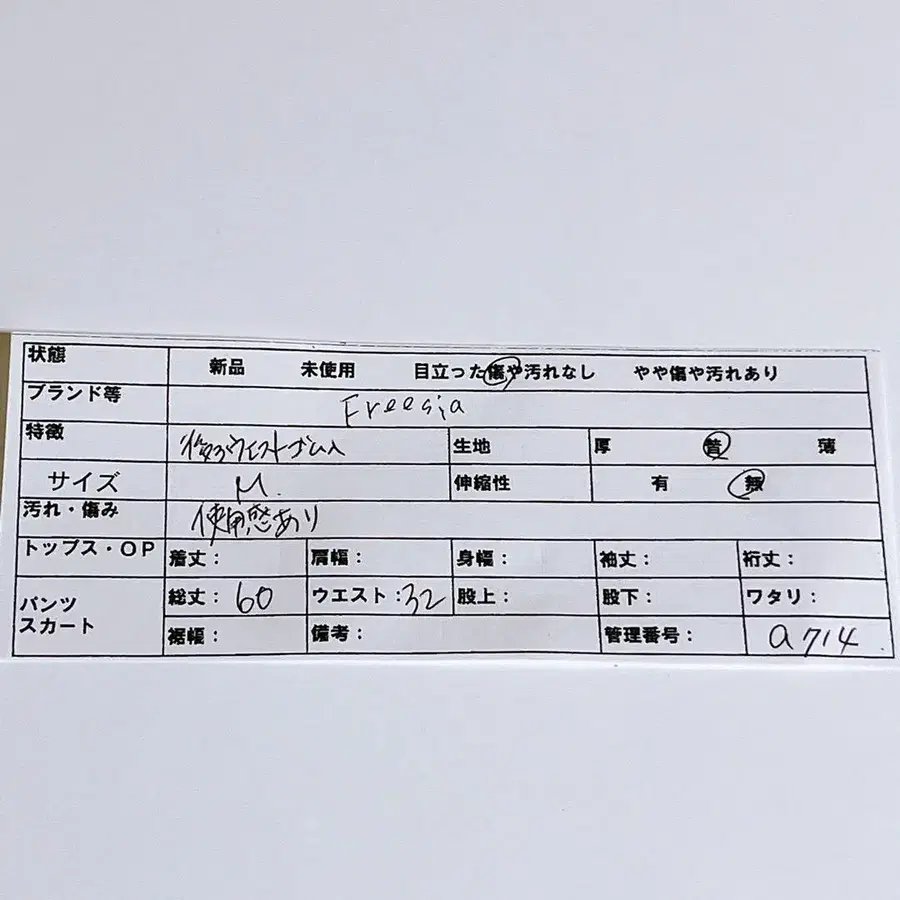 状態 新品 未使用 目立った傷や汚れなし やや傷や汚れあり
ブランド等 Freesia
特徴 後ろウエストゴム入 生地 厚 普 薄
サイズ M. 伸縮性 有 無
汚れ・傷み 使用感あり
トップス・OP 着丈： 肩幅： 身幅： 袖丈： 裄丈：
パンツ スカート 総丈：60 ウエスト：32 股上： 股下： ワタリ：
裾幅： 備考： 管理番号： a714